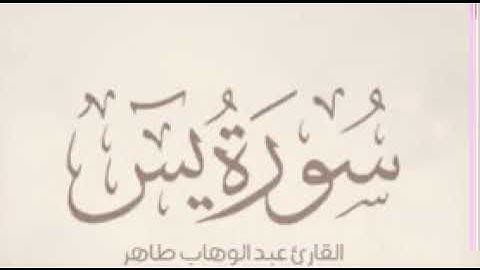 سُورَةُ يسٓ
القارئ عبدالوهاب طاهر